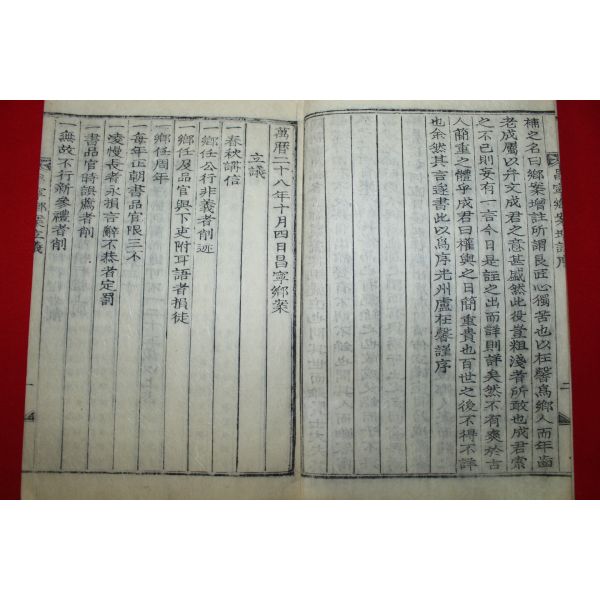 補之名曰鄕案增註所謂良匠心獨苦也以在馨爲鄕人而年齒
老成屬以弁文成君之意甚盛然此役豈粗淺者所敢也成君索
之不已則妄有一言今日是註之出而詳則詳矣然不有爽於古
人簡重之體乎成君曰權輿之日簡重貴也百世之後不得不詳
也余然其言遂書此以爲序光州盧在馨謹序
昌寧鄕案增註序
二
萬曆二十八年十月四日昌寧鄕案
立議
一春秋講信
一鄕任公行非義者削迹
一鄕任及品官與下吏附耳語者損徒
一鄕任周年
一每年正朝書品官限三不
一凌慢長者永損言辭不恭者定罰
一書品官時誤薦者削
一無故不行新參禮者削
昌寧鄕案立議
一